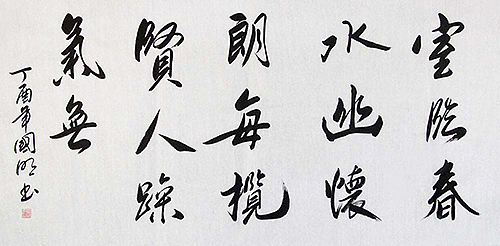 室臨春
水幽懷
朗每攬
賢人躁
氣無
丁酉年國明书